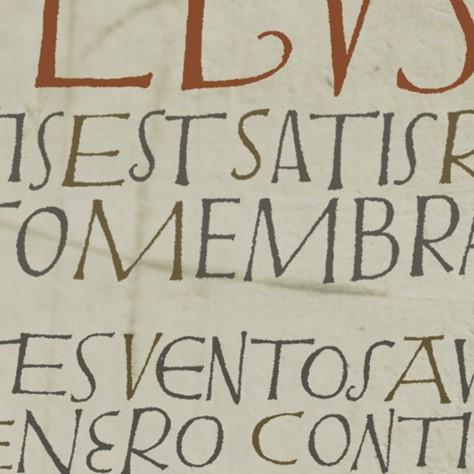 ELVS
TISEST SATISR
TOMEMBRA
TESVENTOSAV
ENERO CONTI